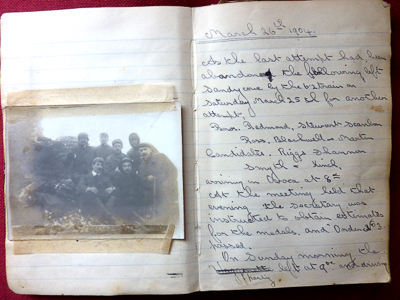 March 26th 1904.
As the last attempt had been
abandoned the following left
Sandycove by the 6 train on
Saturday March 25th for another
attempt.
Redmond, Stewart Scanlan
Ross, Blackwell & Martin
Candidates. Riggs Shannon
Smyth & Kinch
arriving in at 8
At the meeting held that
evening the Secretary was
instructed to obtain estimates
for the medals, and Order
passed.
On Sunday morning the
left at 9